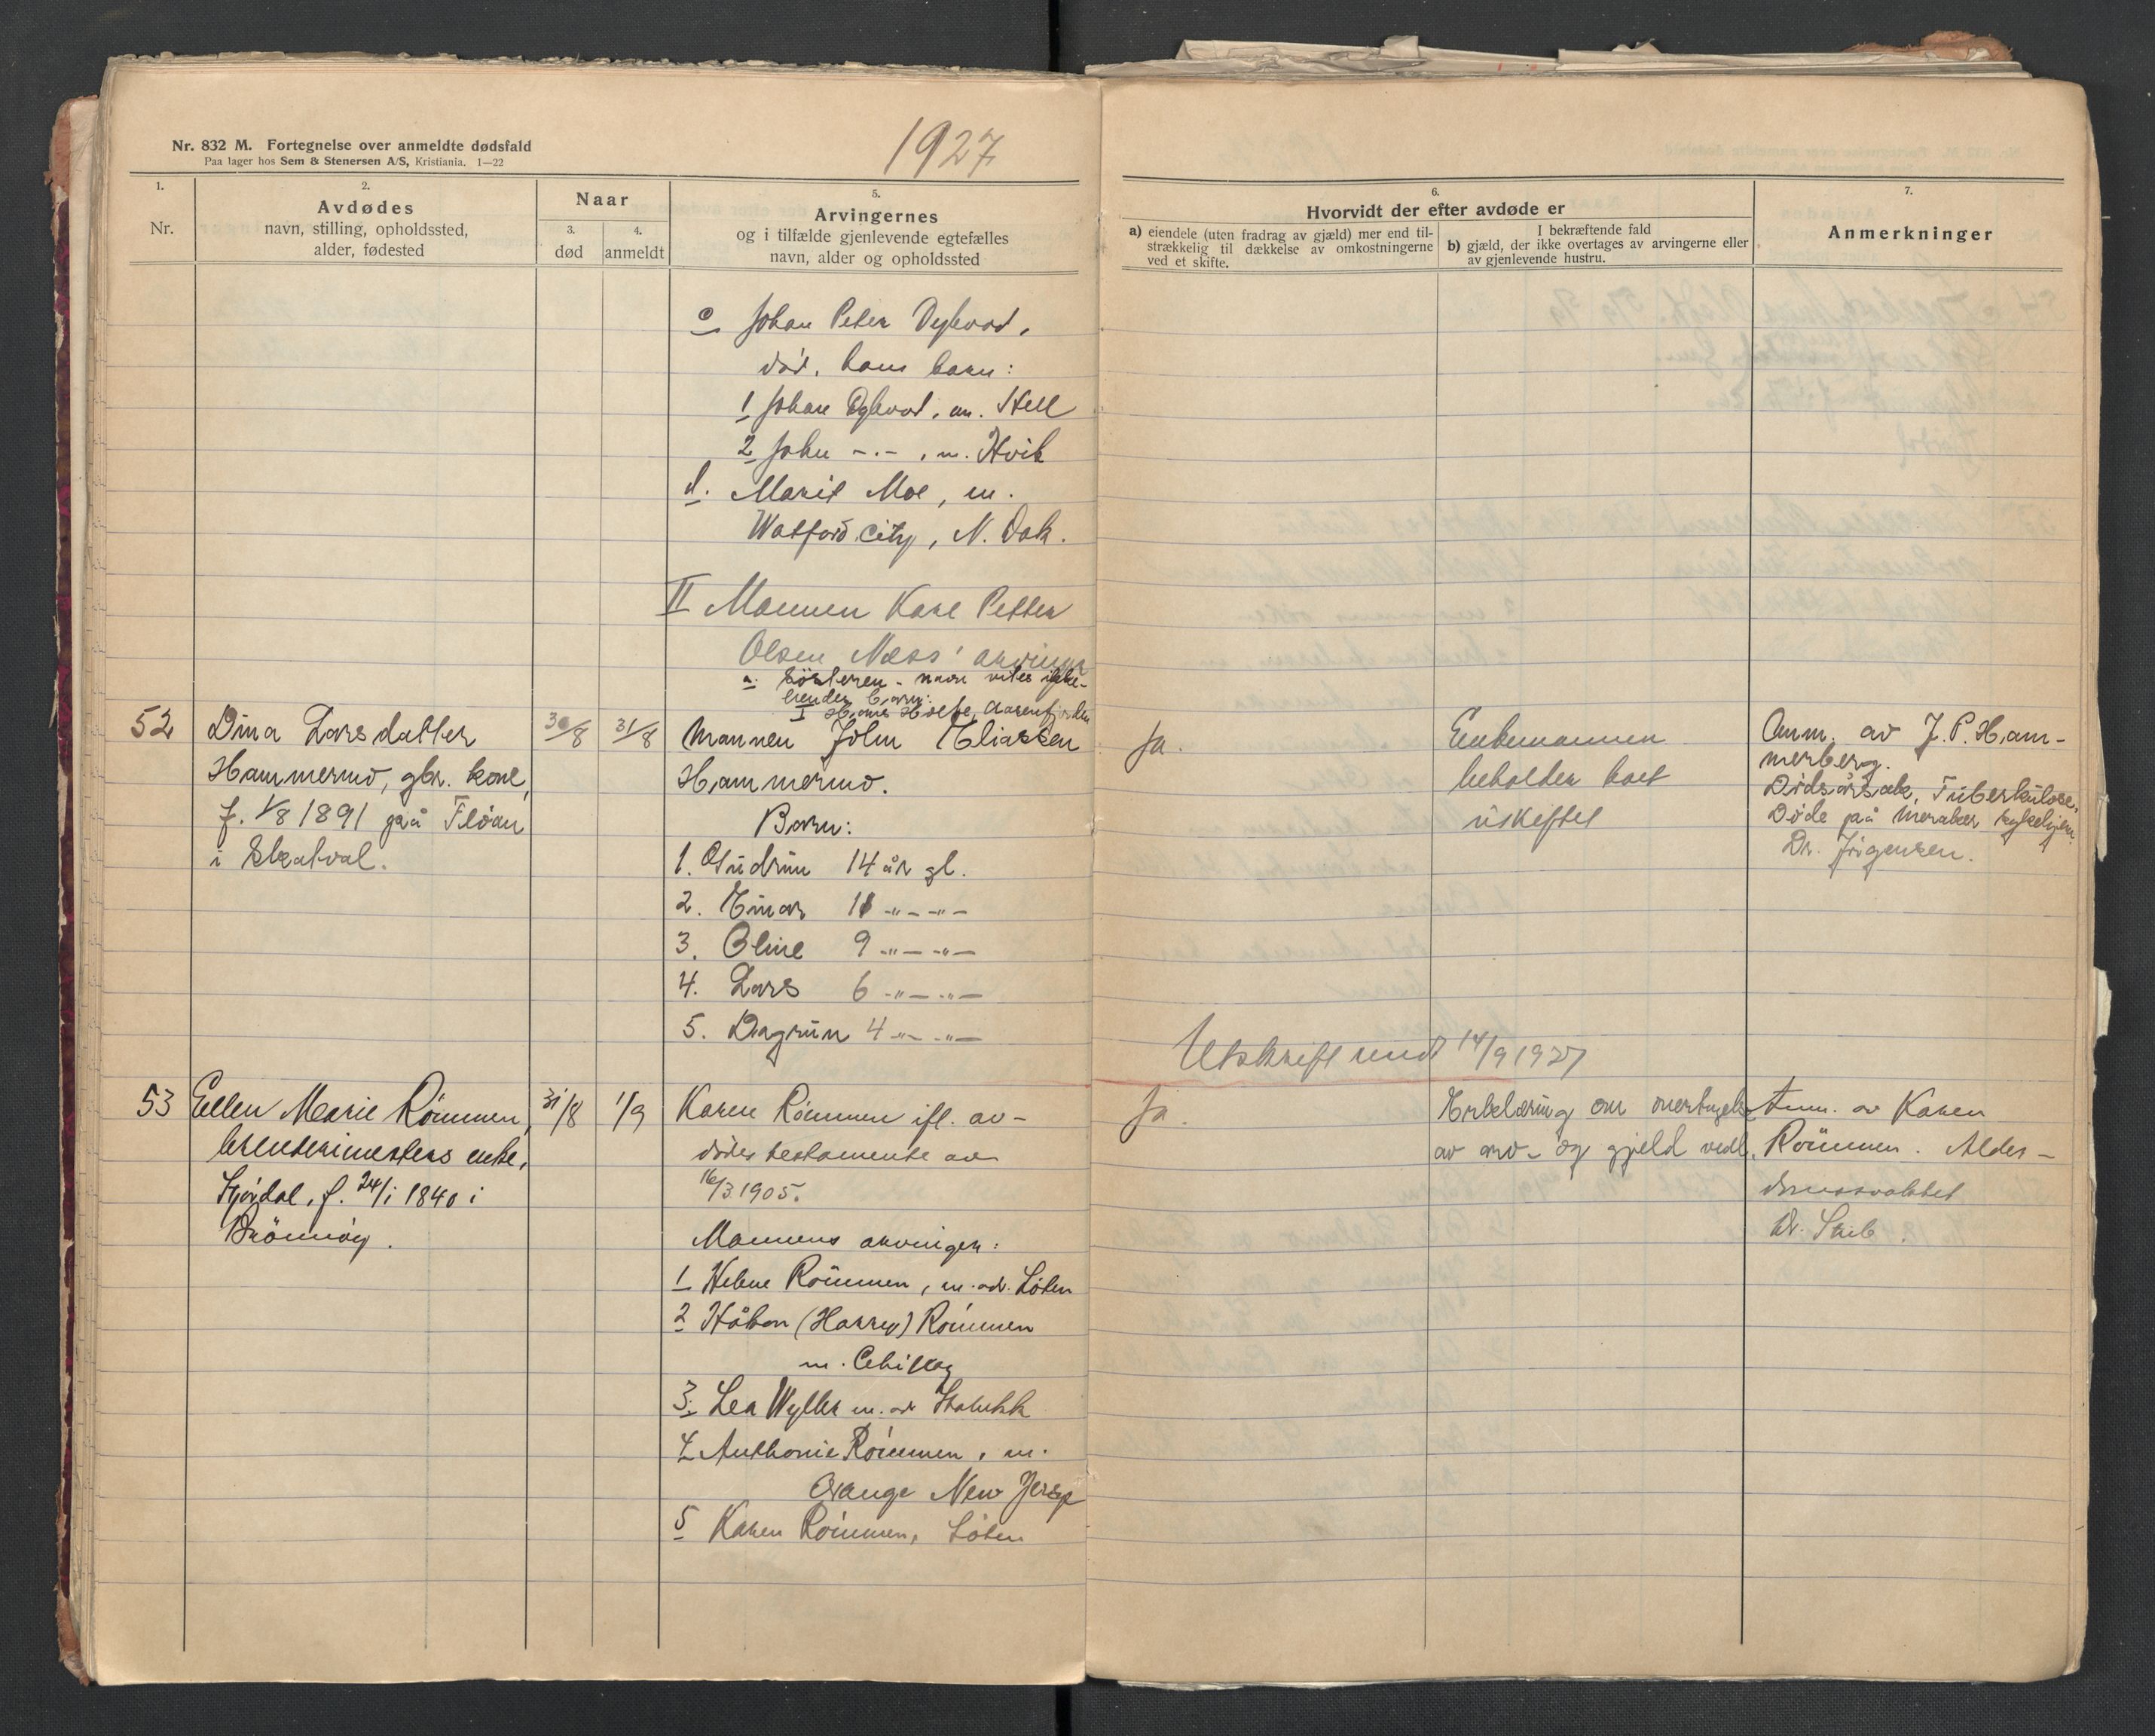 Nr. 832 M. Fortegnelse over anmeldte dødsfald
Paa lager hos Sem & Stenersen A/S, Kristiania. 1—22
1927
1.
Nr.
2.
Avdødes
navn, stilling, opholdssted,
alder, fødested
Naar
3.
død
4.
anmeldt
5.
Arvingernes
og i tilfælde gjenlevende egtefælles
navn, alder og opholdssted
6.
Hvorvidt der efter avdøde er
a) eiendele (uten fradrag av gjæld) mer end til-
strækkelig til dækkelse av omkostningerne
ved et skifte.
I bekræftende fald
b) gjæld, der ikke overtages av arvingerne eller
av gjenlevende hustru.
7.
Anmerkninger
c Johan Peter Dybvad,
død, hans barn:
1 Johan Dybvad, m. Hell
2 John -.- , m. Hvik
d. Marit Moe, m.
Watford City, N. Dak.
II Mannen Karl Petter
Olsen Næss' arvinger
a. Søsteren - navn vites ikke -
hendes barn:
I Hans Holte, Aasenfjorden
52
Dina Larsdatter
Hammermo, gbr. kone,
f. 1/8 1891 på Fløan
i Skatval.
30/8
31/8
Mannen John Eliassen
Hammermo.
Barn:
1. Gudrun 14 år gl.
2. Einar 11 -"- -"-
3. Oline 9 -"- -"-
4. Lars 6 -"- -"-
5. Dagrun 4 -"- -"-
Ja.
Enkemannen
beholder boet
uskiftet
Anm. av J. P. Ham-
merberg.
Dødsårsak, Tuberkulose.
Døde på Meraker sykehjem.
Dr. Jørgensen.
Utskrift undt 14/9 1927
53
Ellen Marie Römmen,
lrentenimesters enke,
Stjørdal, f. 24/1 1840 i
Brönnöy.
31/8
1/9
Karen Römmen ifl. av-
dødes testamente av
16/3 1905.
Mannens arvinger:
1 Helene Römmen, m. adr. Löten
2 Håkon (Harry) Römmen
m. Chikag
3. Lea Wyller m. adr
4 Anthonie Römmen, m.
Orange New Jersy
5 Karen Römmen, Löten
Ja.
Erklæring om overtagelse
av arv- og gjeld vedl.
Anm. av Karen
Römmen. Alder-
domssvakhet
Dr. Skib.